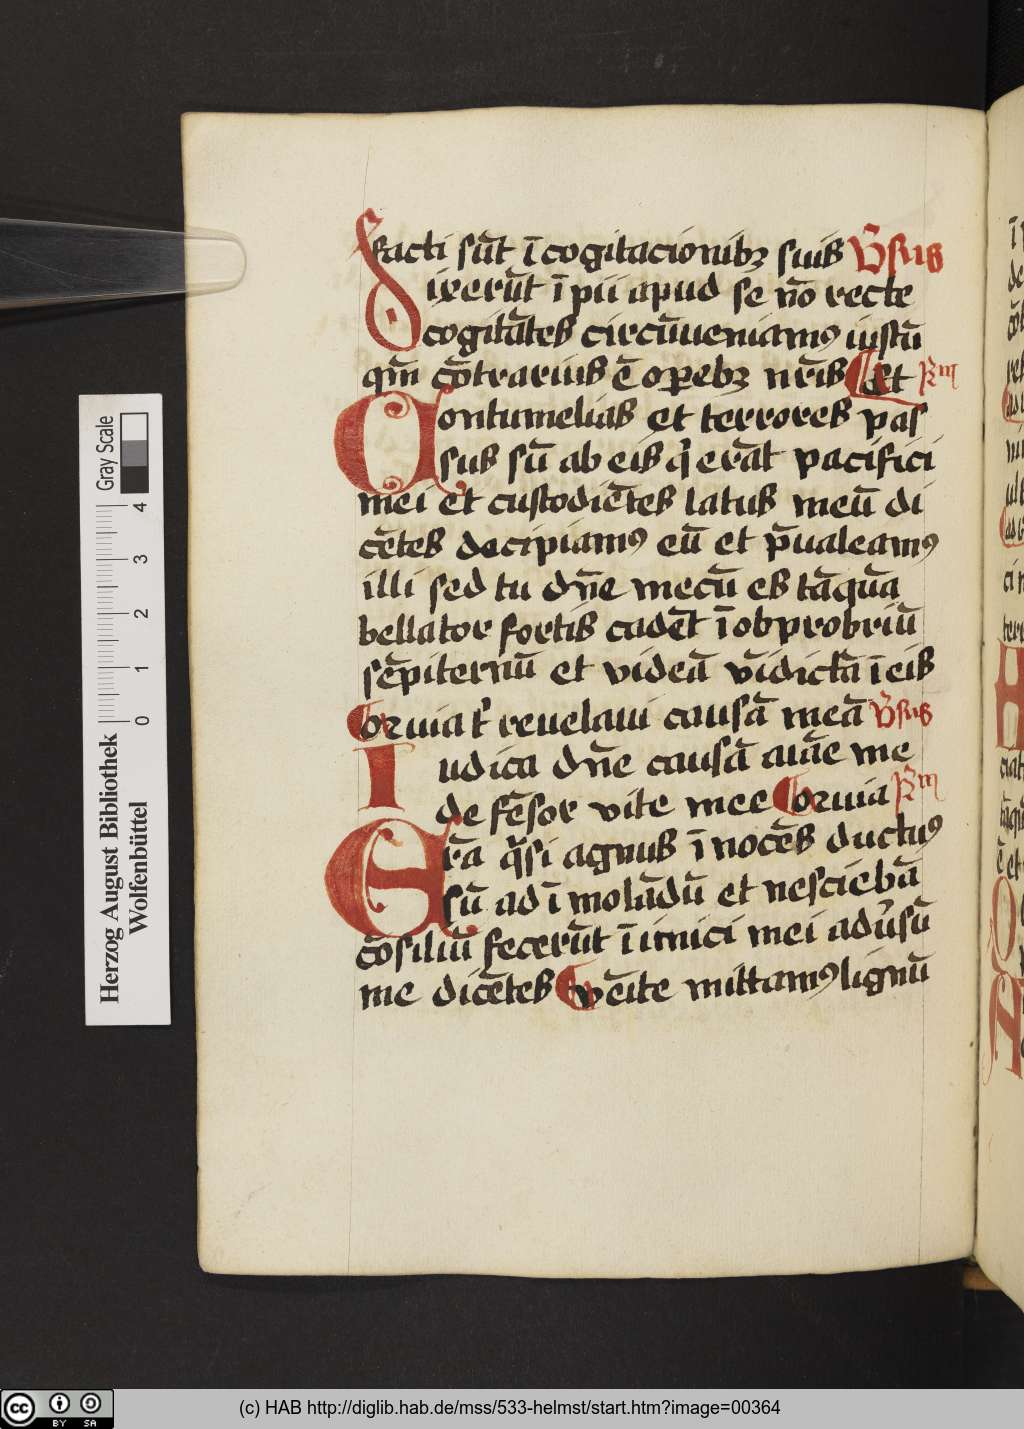 facti sūt ī cogitacionibꝫ suis V̉sus
Dixerūt īpii apud se nō recte
cogitātes circūueniamꝰ iustū
qm̄ cōtrarius ē oꝑebꝫ nr̄is Et R̉m
Contumelias et terrores pas
sus sū ab eis q̉ erāt pacifici
mei et custodiētes latus meū di
cētes decipiamꝰ eū et p̄ualeamꝰ
illi sed tu dn̄e mecū es tāquā
bellator fortis cadēt ī obprobriū
sēpiternū et videā vīdictā ī eis
Oz uiat᷑ reuelaui causā meā V̉sus
Iudica dn̄e causā aīāe me
defēsor vite mee Oz uia R̉m
Erā q̄si agnus īnocēs ductꝰ
sū ad īmolādū et nesciebā
cōsiliū fecerūt īimici mei adūsū
me dicētes Vēite mittamꝰ lignū
Gray Scale
0 1 2 3 4
Herzog August Bibliothek
Wolfenbüttel
(c) HAB http://diglib.hab.de/mss/533-helmst/start.htm?image=00364
cc BY SA